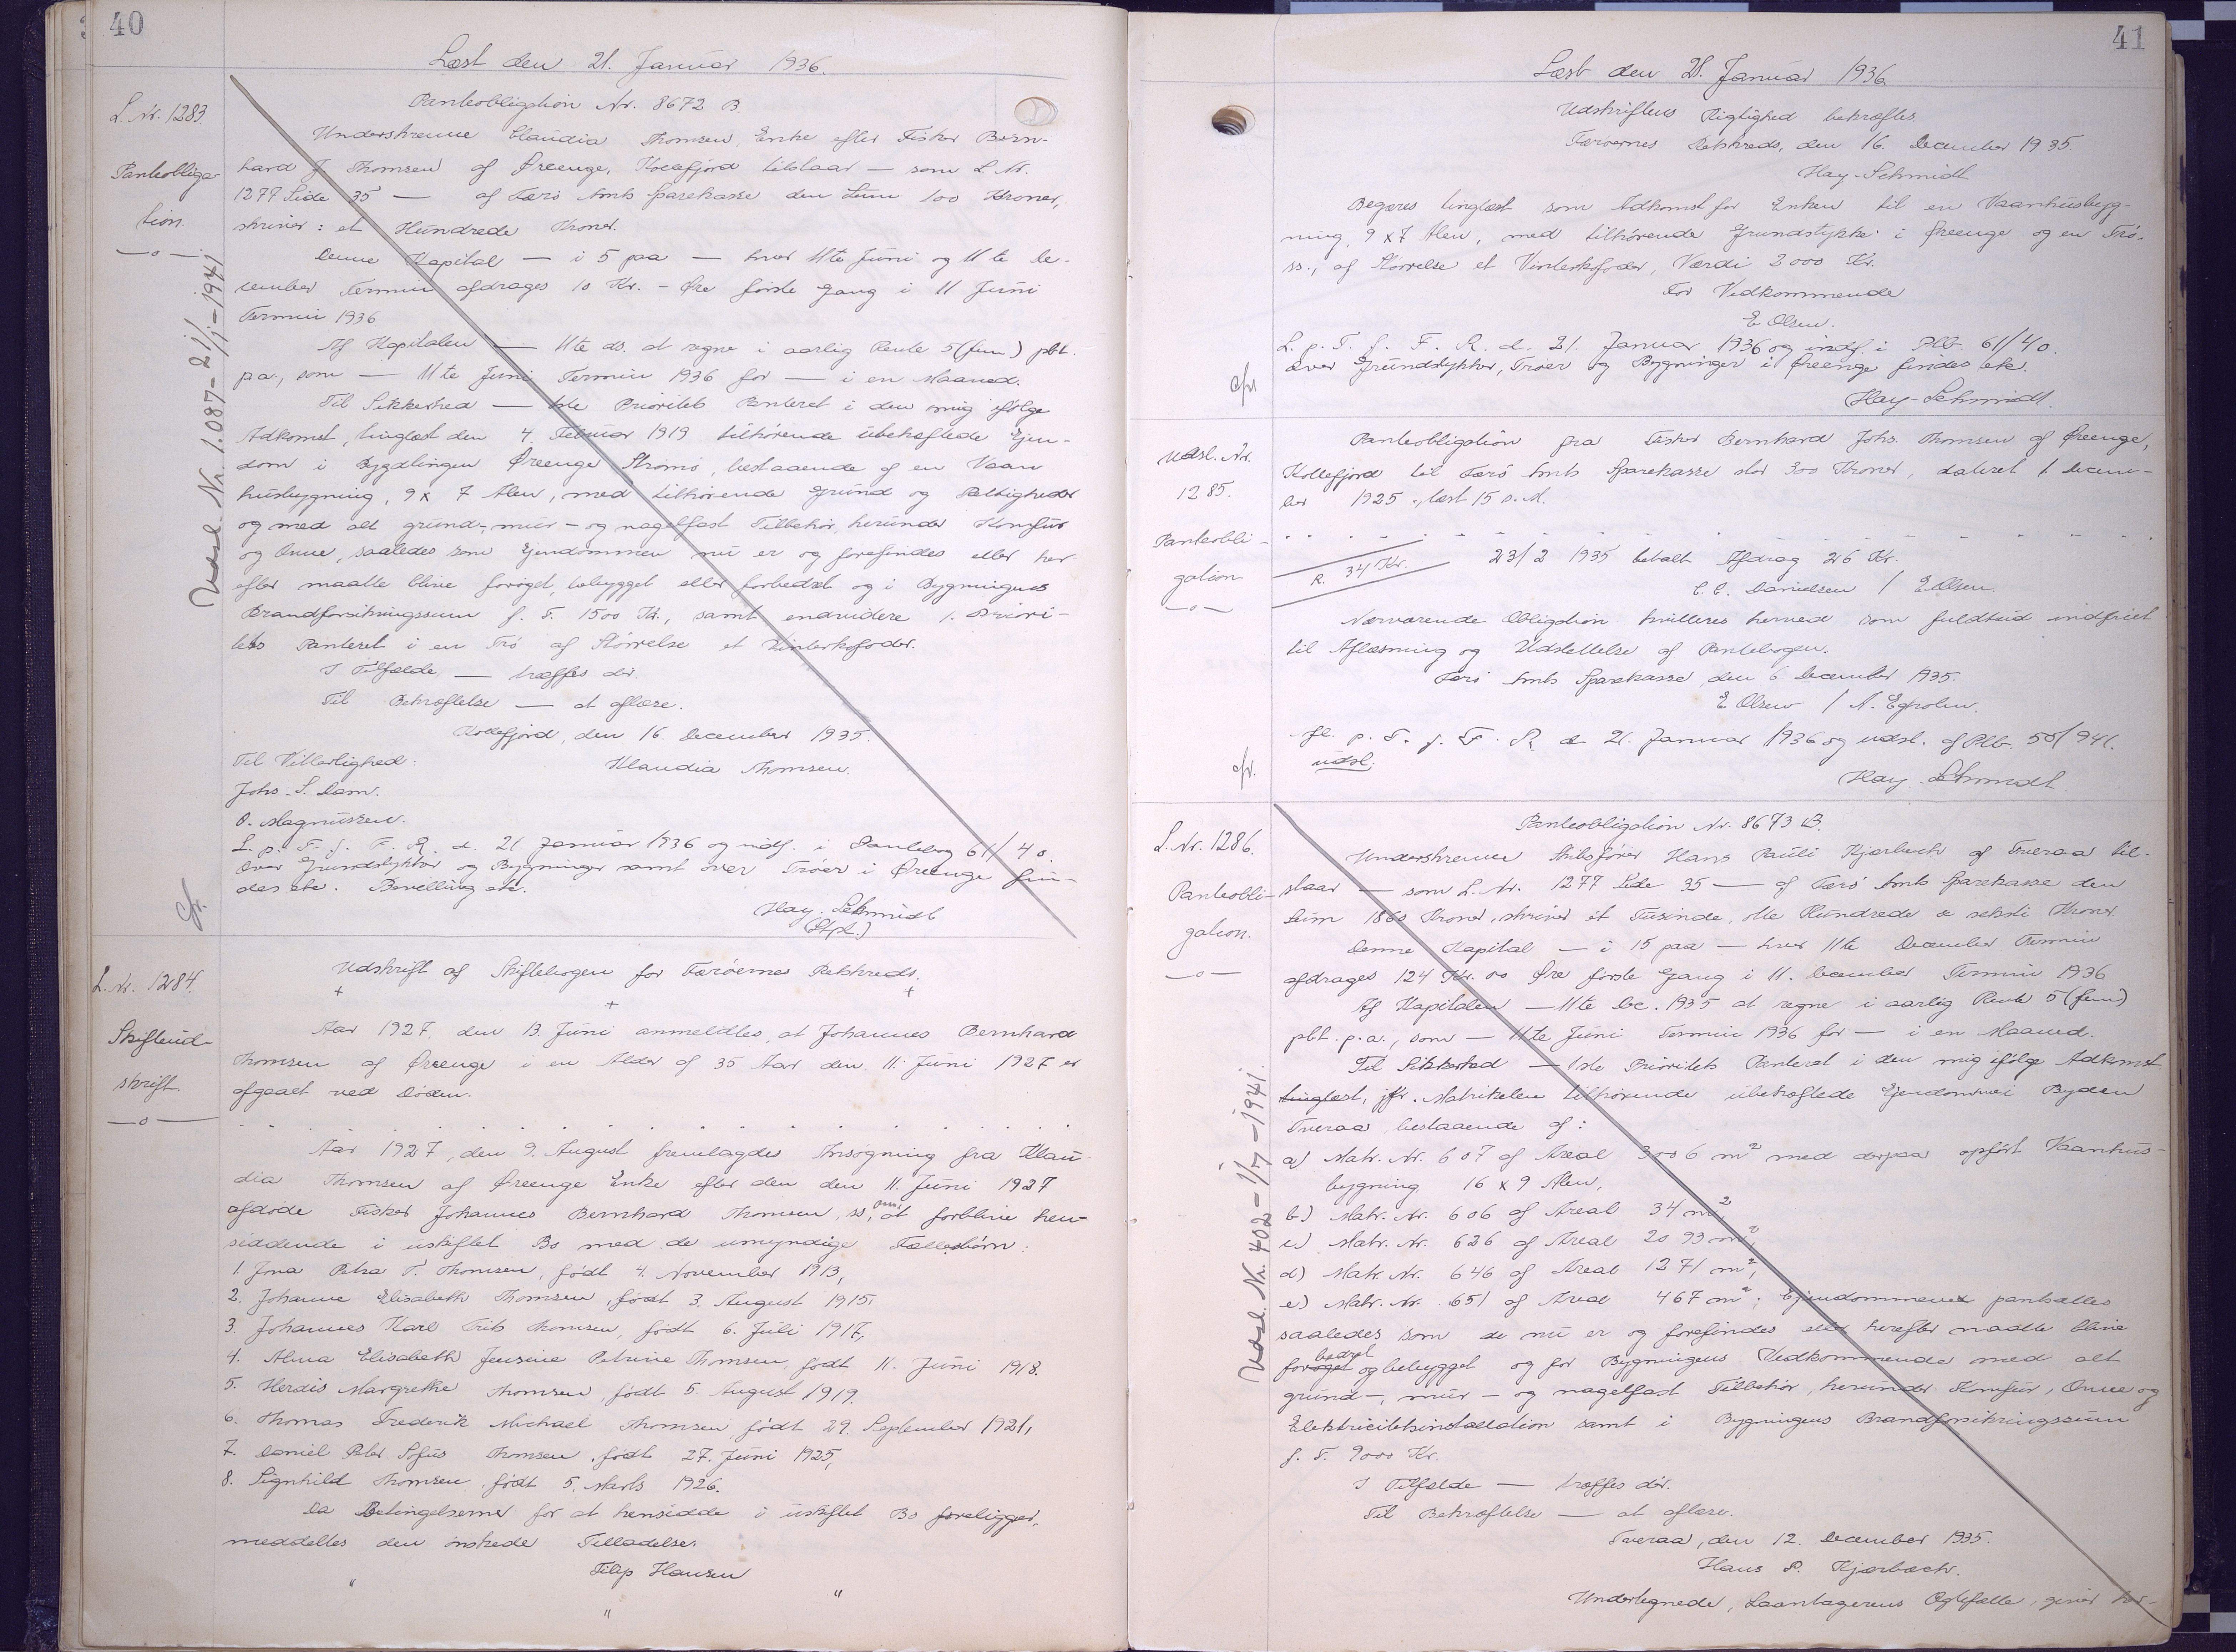 40
Læst den 21. Januar 1936.
L. Nr. 1283.
Panteobliga-
tion.
Udsl. Nr. 1.087 - 2/1 - 1941
Panteobligation Nr. 8672 B
Underskrevne Claudia Thomsen, Enke efter Fisker Bern-
hard J. Thomsen af Øreenge, Kollefjord tilstaar — som L. Nr.
1277 Side 35 — af Færø Amts Sparekasse den Sum 100 Kroner,
skriver: et Hundrede Kroner.
Denne Kapital — i 5 paa — hver 11te Juni og 11te De-
cember Termin afdrages 10 Kr. - Øre første Gang i 11 Juni
Termin 1936
Af Kapitalen — 11te ds. at regne i aarlig Rente 5 (fem) pct.
p.a., som — 11te Juni Termin 1936 for — i en Maaned.
Til Sikkerhed — 1ste Prioritets Panteret i den mig ifølge
Adkomst, tinglæst den 4. Februar 1919 tilhørende ubehæftede Ejen-
dom i Bygdlingen Øreenge Strømø, bestaaende af en Vaan-
husbygning, 9 x 7 Alen, med tilhørende Grund og Rettigheder
og med alt grund-, mur- og nagelfast Tilbehør, herunder Komfur
og Ovne, saaledes som Ejendommen nu er og forefindes eller her-
efter maatte blive forøget, bebygget eller forbedret og i Bygningens
Brandforsikringssum f. T. 1500 Kr., samt endvidere 1. Priori-
tets Panteret i en Trø af Størrelse et Vinterkofoder.
I Tilfælde — træffes dér.
Til Bekræftelse — at aflæse.
Kollefjord, den 16. December 1935.
Til Vitterlighed:
Klaudia Thomsen.
Johs. S. Dam.
O. Magnussen.
L. p. T. f. F. R. d. 21 Januar 1936 og indf. i Pantebog 61/40.
Over Grundstykker og Bygninger samt over Trøer i Øreenge fin-
des etc. Bevilling etc.
Hay-Schmidt
(Stpl.)
cfr.
L. Nr. 1284.
Skifteud-
skrift.
Udskrift af Skiftebogen for Færøernes Retskreds.
Aar 1927, den 13. Juni anmeldtes, at Johannes Bernhard
Thomsen af Øreenge i en Alder af 35 Aar den 11. Juni 1927 er
afgaaet ved Døden.
Aar 1927, den 9. August fremlagdes Ansøgning fra Klau-
dia Thomsen af Øreenge Enke efter den den 11. Juni 1927
afdøde Fisker Johannes Bernhard Thomsen, ss., om at forblive hen-
siddende i uskiftet Bo med de umyndige Fællesbørn:
1. Jona Petra T. Thomsen, født 4. November 1913,
2. Johanne Elisabeth Thomsen, født 3. August 1915,
3. Johannes Karl Frits Thomsen, født 6. Juli 1917,
4. Alma Elisabeth Jensine Petrine Thomsen, født 11. Juni 1918.
5. Herdis Margrethe Thomsen, født 5. August 1919.
6. Thomas Frederik Michael Thomsen, født 29. September 1921,
7. Daniel Peter Sofus Thomsen, født 27. Juni 1925,
8. Signhild Thomsen, født 5. Marts 1926.
Da Betingelserne for at hensidde i uskiftet Bo foreligger,
meddeltes den ønskede Tilladelse.
Filip Hansen
41
Læst den 21. Januar 1936
Udskriftens Rigtighed bekræftes.
Færøernes Retskreds, den 16. December 1935.
Hay-Schmidt
Begæres tinglæst som Adkomst for Enken til en Vaanhusbyg-
ning, 9 x 7 Alen, med tilhørende Grundstykke i Øreenge og en Trø,
ss., af Størrelse et Vinterkofoder, Værdi 2000 Kr.
For Vedkommende
E Olsen.
L. p. T. f. F. R. d. 21. Januar 1936 og indf. i Ptb. 61/40.
Over Grundstykker, Trøer og Bygninger i Øreenge findes etc.
cfr.
Hay-Schmidt.
Udsl. Nr.
1285.
Panteobli-
gation.
Panteobligation fra Fisker Bernhard Johs. Thomsen af Øreenge,
Kollefjord til Færø Amts Sparekasse stor 300 Kroner, dateret 1 Decem-
ber 1925, læst 15 s. M.
R. 34 Kr.
23/2 1935 betalt Afdrag 26 Kr.
C. C. Danielsen / E. Olsen.
Nærværende Obligation kvitteres herved som fuldtud indfriet
til Aflæsning og Udslettelse af Pantebogen.
Færø Amts Sparekasse, den 6. December 1935.
E Olsen / N. Egholm.
Afl. p. T. f. F. R. d. 21. Januar 1936 og udsl. af Ptb. 50/941.
udsl.
cfr.
Hay-Schmidt.
L. Nr. 1286.
Panteobli-
gation.
Udsl. Nr. 402 - 1/7 - 1941.
Panteobligation Nr. 8673 B.
Underskrevne Skibsfører Hans Pauli Kjærbech af Tveraa til-
staar — som L. Nr. 1277 Side 35 — af Færø Amts Sparekasse den
Sum 1860 Kroner, skriver ét Tusinde, otte Hundrede & seksti Kroner.
Denne Kapital — i 15 paa — hver 11te December Termin
afdrages 124 Kr. 00 Øre første Gang i 11. December Termin 1936
Af Kapitalen — 11te Dec. 1935 at regne i aarlig Rente 5 (fem)
pct. p.a., som — 11te Juni Termin 1936 for — i en Maaned.
Til Sikkerhed — 1ste Prioritets Panteret i den mig ifølge Adkomst
tinglæst, jfr. Matrikelen tilhørende ubehæftede Ejendomme i Byden
Tveraa bestaaende af:
a) Matr. Nr. 607 af Areal 3006 m² med derpaa opført Vaanhus-
bygning 16 x 9 Alen,
b) Matr. Nr. 606 af Areal 34 m²
c) Matr. Nr. 626 af Areal 2093 m²,
d) Matr. Nr. 646 af Areal 1271 m²,
e) Matr. Nr. 651 af Areal 467 m²; Ejendommene pantsættes
saaledes som de nu er og forefindes eller herefter maatte blive
forøget bedret og bebygget og for Bygningens Vedkommende med alt
grund-, mur- og nagelfast Tilbehør, herunder Komfur, Ovne og
Elektricitetsinstallation samt i Bygningens Brandforsikringssum
f. T. 9000 Kr.
I Tilfælde — træffes dér.
Til Bekræftelse — at aflæse.
Tveraa, den 12. December 1935.
Hans P. Kjærbech.
Undertegnede, Laantagerens Ægtefælle, giver her-